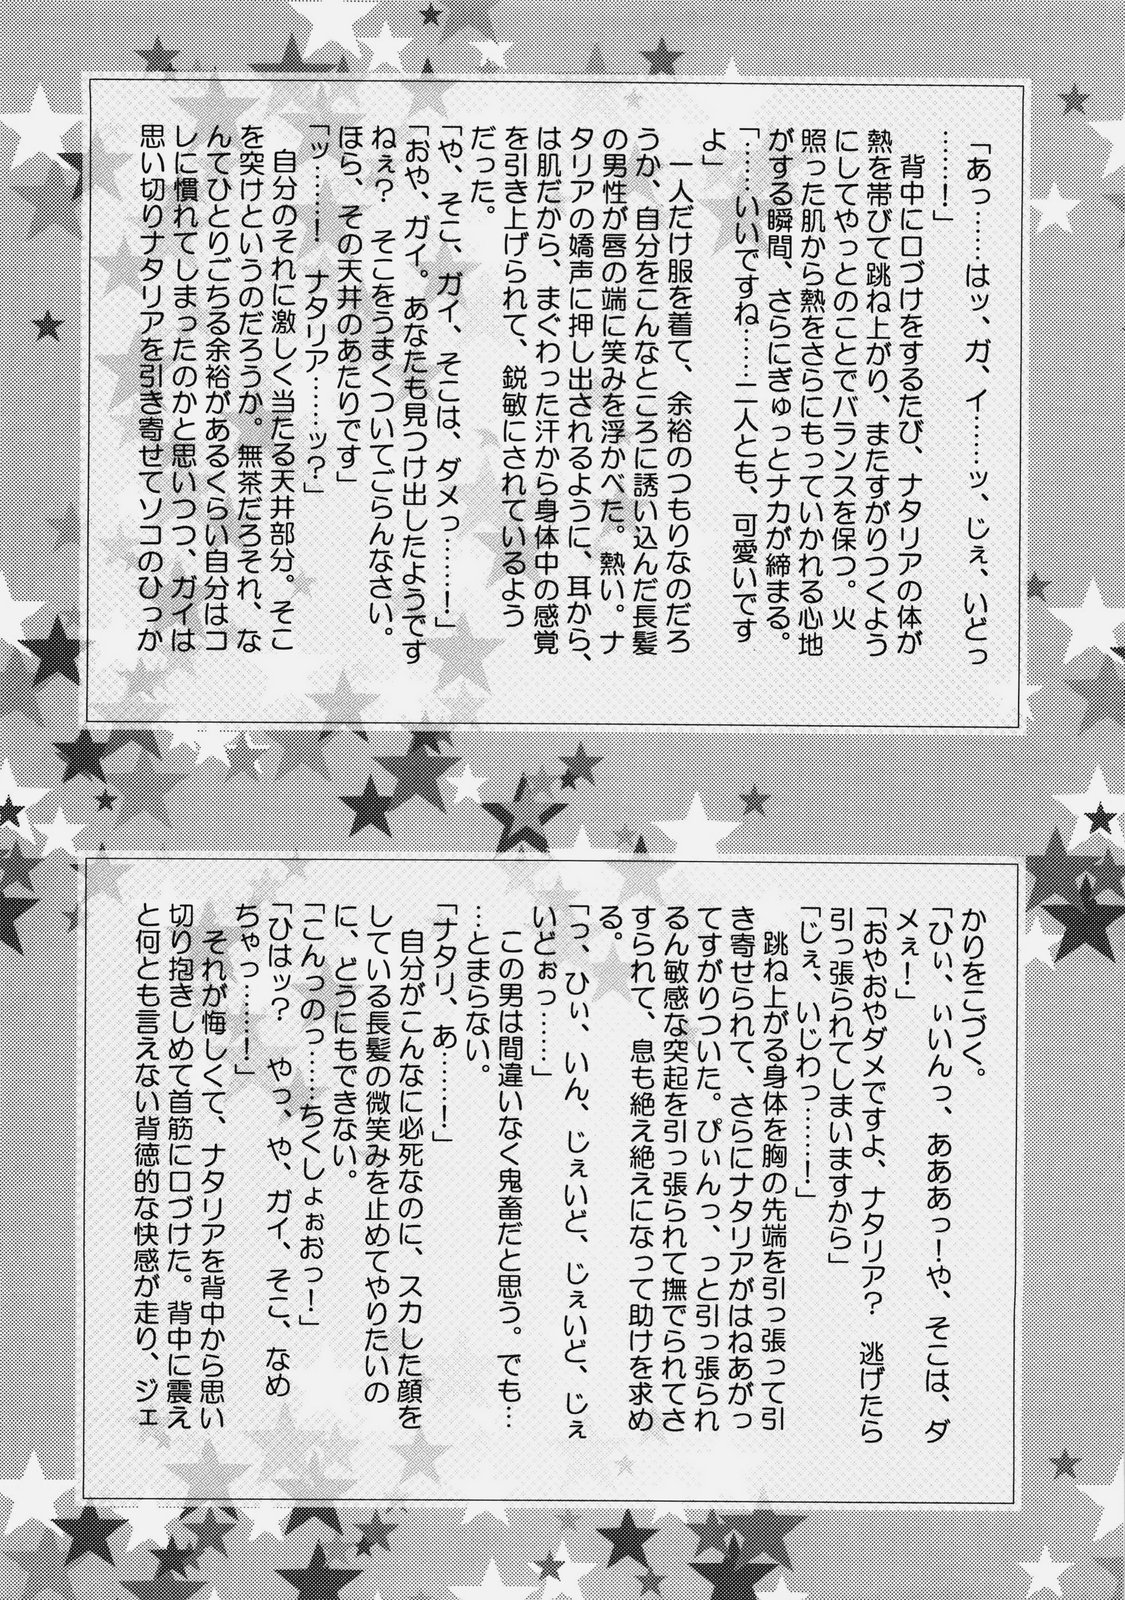 「あっ……はッ、ガ、イ……ッ、じぇ、いどっ
……！」
　背中に口づけをするたび、ナタリアの体が
熱を帯びて跳ね上がり、またすがりつくよう
にしてやっとのことでバランスを保つ。火
照った肌から熱をさらにもっていかれる心地
がする瞬間、さらにぎゅっとナカが締まる。
「……いいですね……二人とも、可愛いです
よ」
　一人だけ服を着て、余裕のつもりなのだろ
うか、自分をこんなところに誘い込んだ長髪
の男性が唇の端に笑みを浮かべた。熱い。ナ
タリアの嬌声に押し出されるように、耳から、
は肌だから、まぐわった汗から身体中の感覚
を引き上げられて、鋭敏にされているよう
だった。
「や、そこ、ガイ、そこは、ダメっ……！」
「おや、ガイ。あなたも見つけ出したようです
ねぇ？　そこをうまくついてごらんなさい。
ほら、その天井のあたりです」
「ッ……！　ナタリア……ッ？」
　自分のそれに激しく当たる天井部分。そこ
を突けというのだろうか。無茶だろそれ、な
んてひとりごちる余裕があるくらい自分はコ
レに慣れてしまったのかと思いつつ、ガイは
思い切りナタリアを引き寄せてソコのひっか
かりをこづく。
「ひぃ、ぃいんっ、あああっ！や、そこは、ダ
メぇ！」
「おやおやダメですよ、ナタリア？　逃げたら
引っ張られてしまいますから」
「じぇ、いじわっ……！」
　跳ね上がる身体を胸の先端を引っ張って引
き寄せられて、さらにナタリアがはねあがっ
てすがりついた。ぴぃんっ、っと引っ張られ
るん敏感な突起を引っ張られて撫でられてさ
すられて、息も絶え絶えになって助けを求め
る。
「っ、ひぃ、いん、じぇいど、じぇいど、じぇ
いどぉっ……」
　この男は間違いなく鬼畜だと思う。でも…
…とまらない。
「ナタリ、あ……！」
　自分がこんなに必死なのに、スカした顔を
している長髪の微笑みを止めてやりたいの
に、どうにもできない。
「こんっのっ……ちくしょぉおっ！」
「ひはッ？　やっ、や、ガイ、そこ、なめ
ちゃっ……！」
　それが悔しくて、ナタリアを背中から思い
切り抱きしめて首筋に口づけた。背中に震え
と何とも言えない背徳的な快感が走り、ジェ